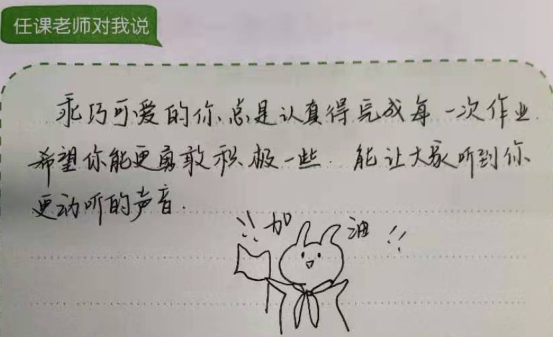 任课老师对我说
乖巧可爱的你,总是认真得完成每一次作业.
希望你能更勇敢积极一些.能让大家听到你
更动听的声音.
!! 加 油 !!